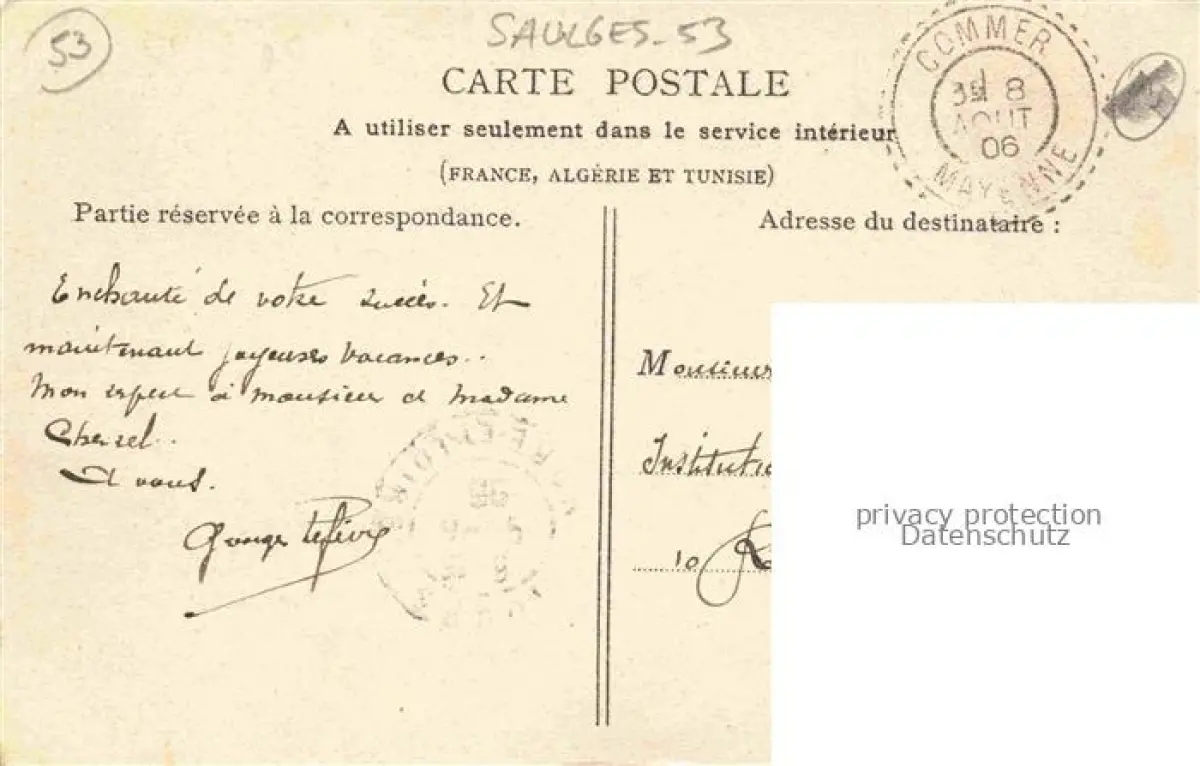 53
SAULGES-53
CARTE POSTALE
A utiliser seulement dans le service intérieur
(FRANCE, ALGÉRIE ET TUNISIE)
COMMER
8
AOUT
06
MAYENNE
Partie réservée à la correspondance.
Enchanté de votre succès. Et
maintenant joyeuses vacances..
Mon respect à monsieur et madame
A vous.
Georges Lefèvre
Adresse du destinataire :
Monsieur
10
privacy protection
Datenschutz